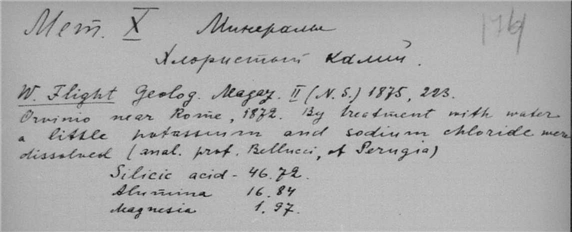 Мет. X Минералы
Хлористый калий.
W. Flight Geolog. Magaz. II (N.S.) 1875, 223.
Orvinio near Rome, 1872. By treatment with water
a little potassium and sodium chloride were
dissolved (anal. prof. Bellucci, of Perugia)
Silicic acid - 46.72.
Alumina 16.84
Magnesia 1.97.